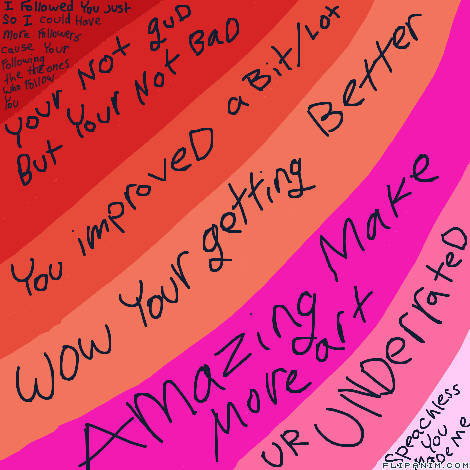 I Followed You Just
So I could Have
More Followers
Cause Your
Following
the the ones
who Follow
You
Your Not guD
But Your Not BaD
You improveD a Bit/Lot
WOW Your getting Better
AMAzing Make
More art
UR UNDerrateD
Speachless
You
MaDe Me
FLIPANIM.COM